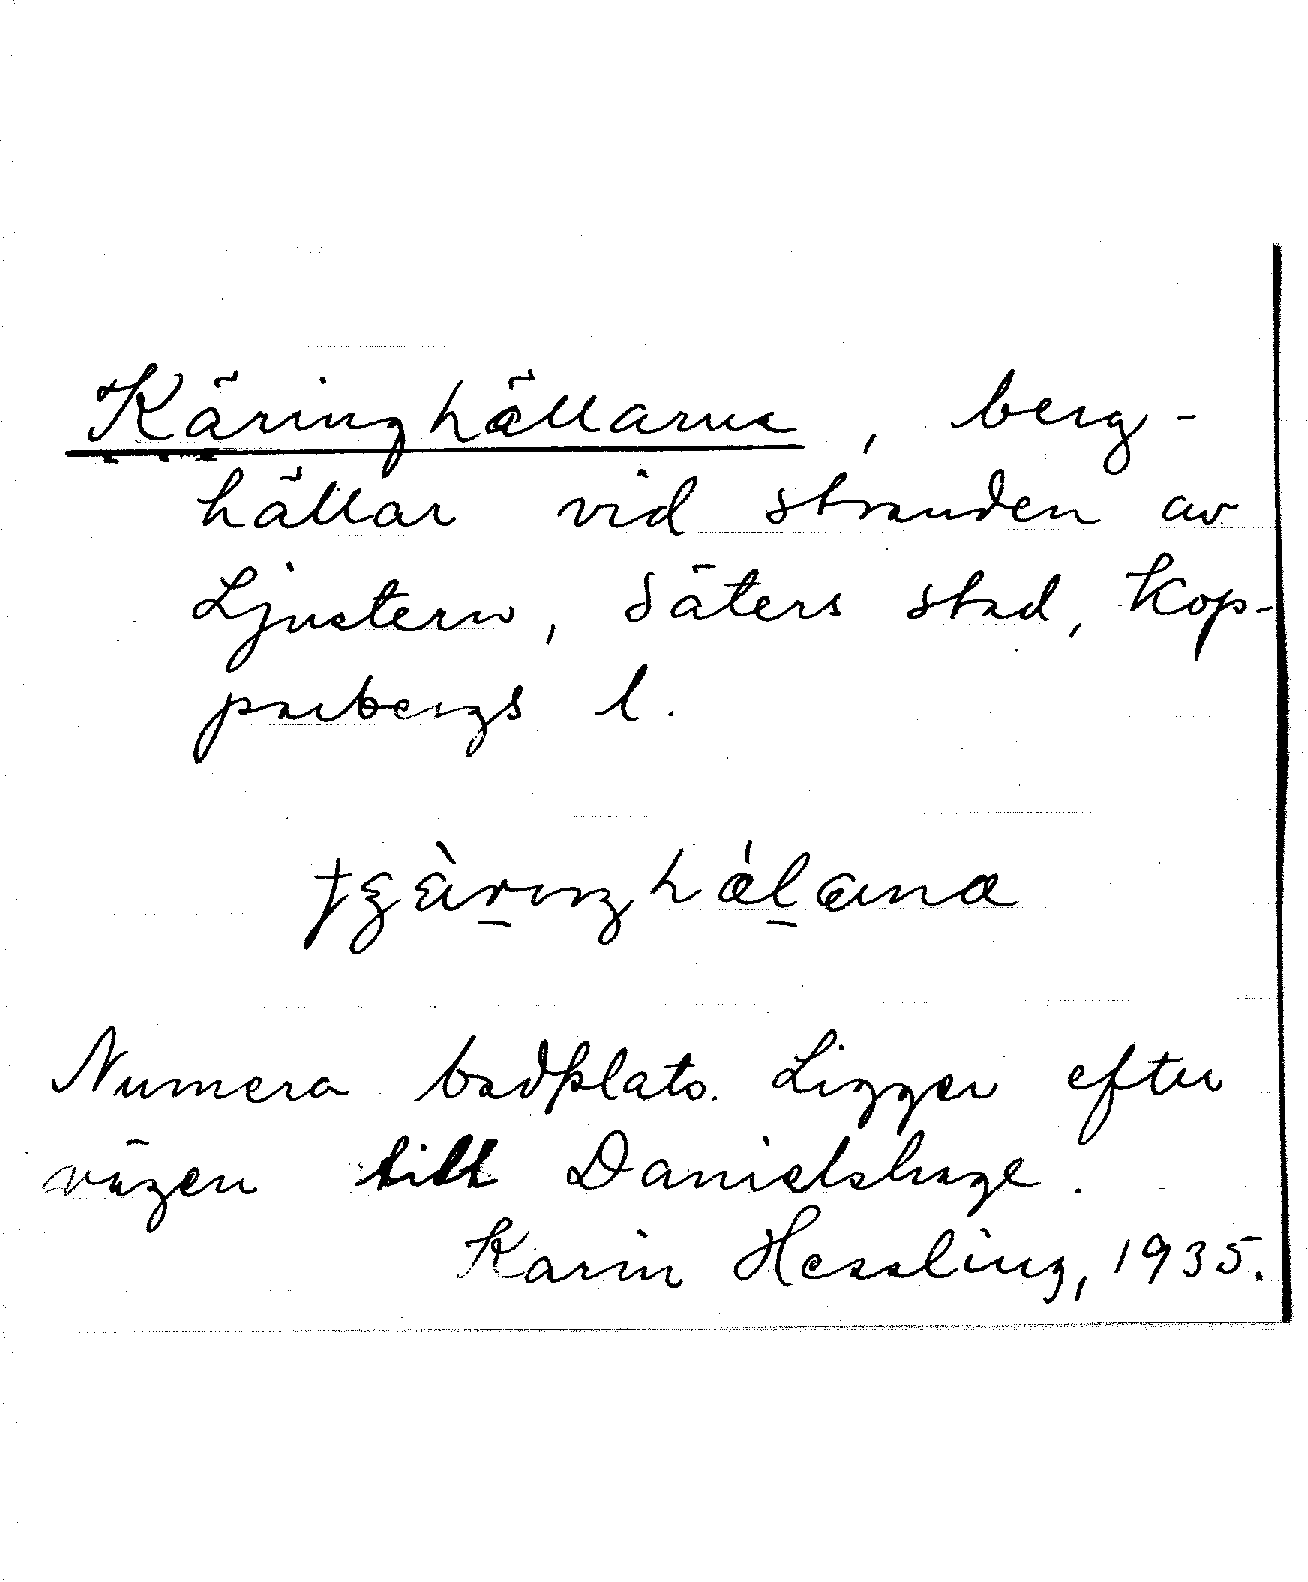 Käringhällarna, berg-
hällar vid stranden av
Ljustern, Säters stad, Kop-
parbergs l.
Numera badplats. Ligger efter
vägen till Danielshage.
Karin Hessling, 1935.